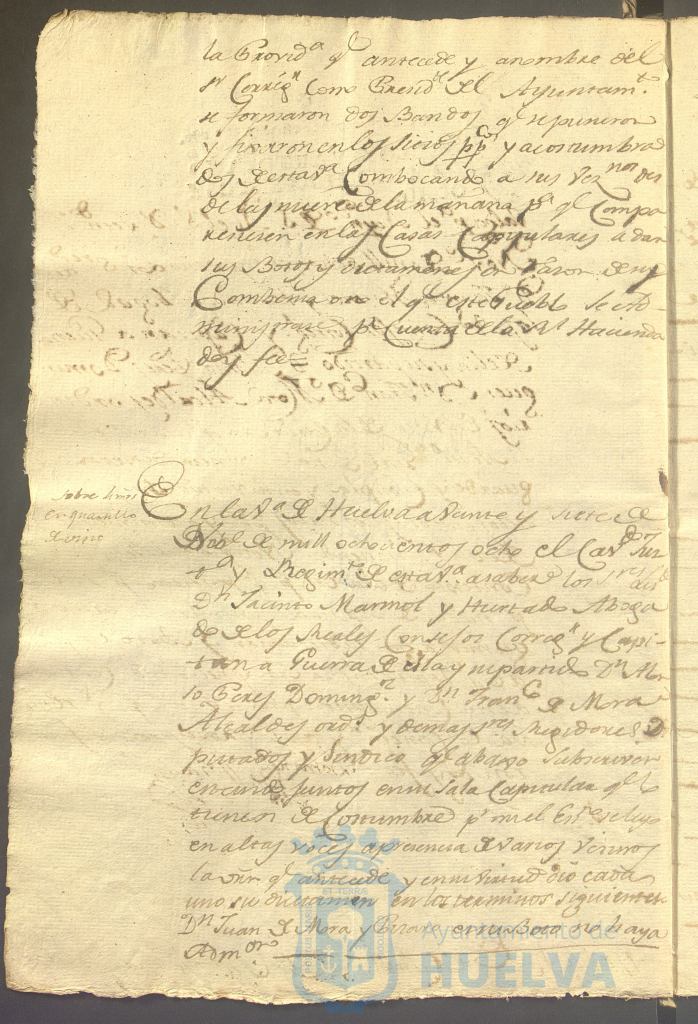 la Provid.ª q.e antecede y a nombre del
s.r Correg.r como Presid.te del Ayuntam.to
se formaron dos Bandos q.e se pusieron
y fixaron en los sitios pp.cos y acostumbra
dos de esta v.ª Combocando a sus vez.nos
de las nueve de la mañana p.ª q.e Compa
reciesen en las Casas Capitulares a dar
sus Botos y dictamenes
Combenia o no el q.e este Pueblo se
administrase p.r Cuenta de la R.l Hacienda
doy fee
sobre
en quartillo
de vino
En la v.ª de Huelva a veinte y siete de
Nob.e de mill ochocientos ocho el Cav.do Jus
t.ª y Regim.to de esta v.ª a saber los s.res
D.n Jacinto Marmol y Hurtado Aboga
do de los Reales Consejos Correg.r y Capi
tan a Guerra de ella y su partido D.n
Peres Doming.z y D.n Fran.co de Mora
Alcaldes ord.s y demas s.res Regidores D
putados y Sindico q.e abajo subscriven
estando juntos en su sala Capitular q.e lo
tienen de Costumbre p.r mi el Ess.no se leyo
en altas voces a presencia de varios vecinos
la q.e antecede y en su virtud dio cada
uno su dictamen en los terminos siguientes
D.n Juan de Mora y en su Boto no haya
Adm.on
Ayuntamiento de
HUELVA